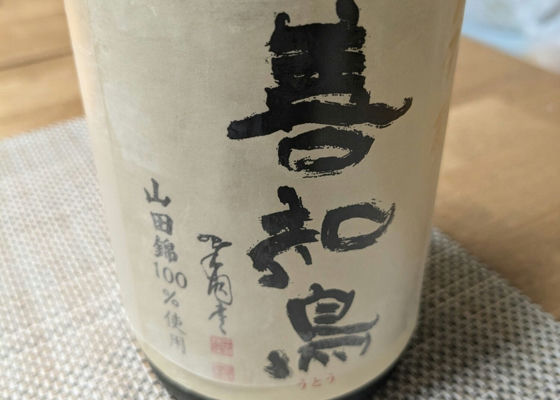 善知鳥
うとう
山田錦100%使用